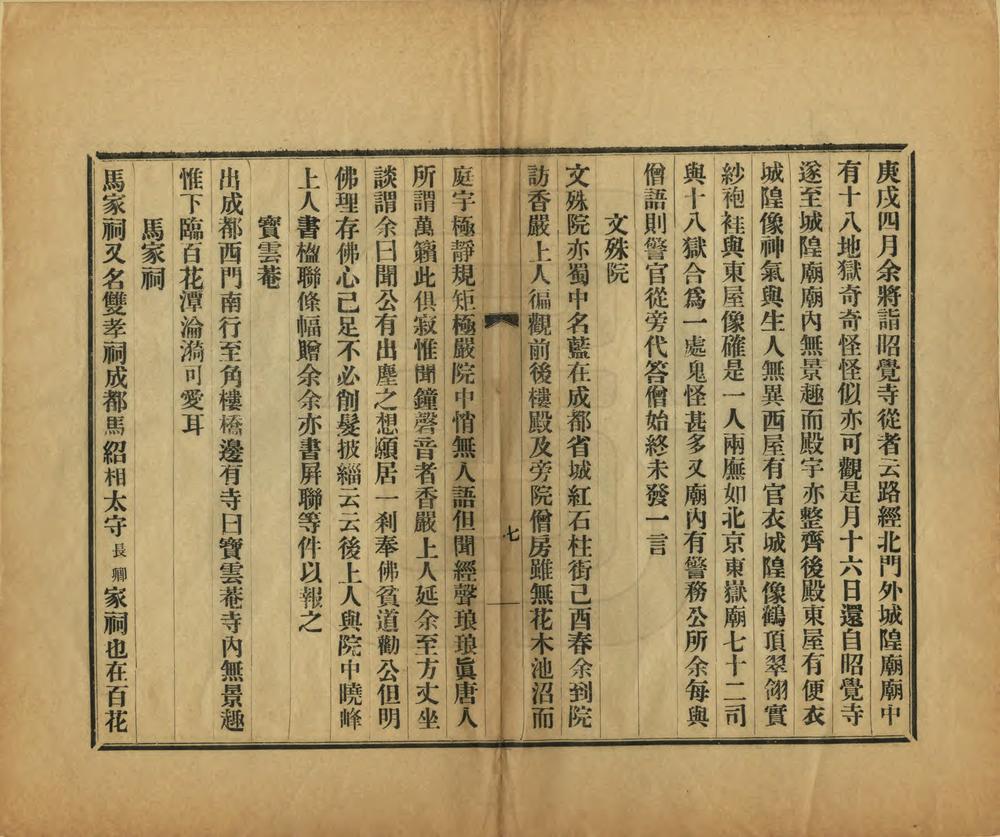 庚戌四月余將詣昭覺寺從者云路經北門外城隍廟廟中
有十八地獄奇奇怪怪似亦可觀是月十六日還自昭覺寺
遂至城隍廟廟內無景趣而殿宇亦整齊後殿東屋有便衣
城隍像神氣與生人無異西屋有官衣城隍像鶴頂翠翎實
紗袍袿與東屋像確是一人兩廡如北京東嶽廟七十二司
與十八獄合爲一處鬼怪甚多又廟內有警務公所余每與
僧語則警官從旁代答僧始終未發一言
文殊院
文殊院亦蜀中名藍在成都省城紅石柱街己酉春余到院
訪香嚴上人徧觀前後樓殿及旁院僧房雖無花木池沼而
七
庭宇極靜規矩極嚴院中悄無人語但聞經聲琅琅眞唐人
所謂萬籟此俱寂惟聞鐘磬音者香嚴上人延余至方丈坐
談謂余曰聞公有出塵之想願居一刹奉佛貧道勸公但明
佛理存佛心已足不必削髮披緇云云後上人與院中曉峰
上人書楹聯條幅贈余余亦書屏聯等件以報之
寶雲菴
出成都西門南行至角樓橋邊有寺曰寶雲菴寺內無景趣
惟下臨百花潭淪漪可愛耳
馬家祠
馬家祠又名雙孝祠成都馬紹相太守長卿家祠也在百花